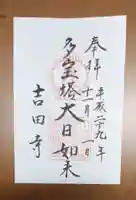 奉拝
平成二十九年
十一月十一日
多宝塔大日如来
吉田寺